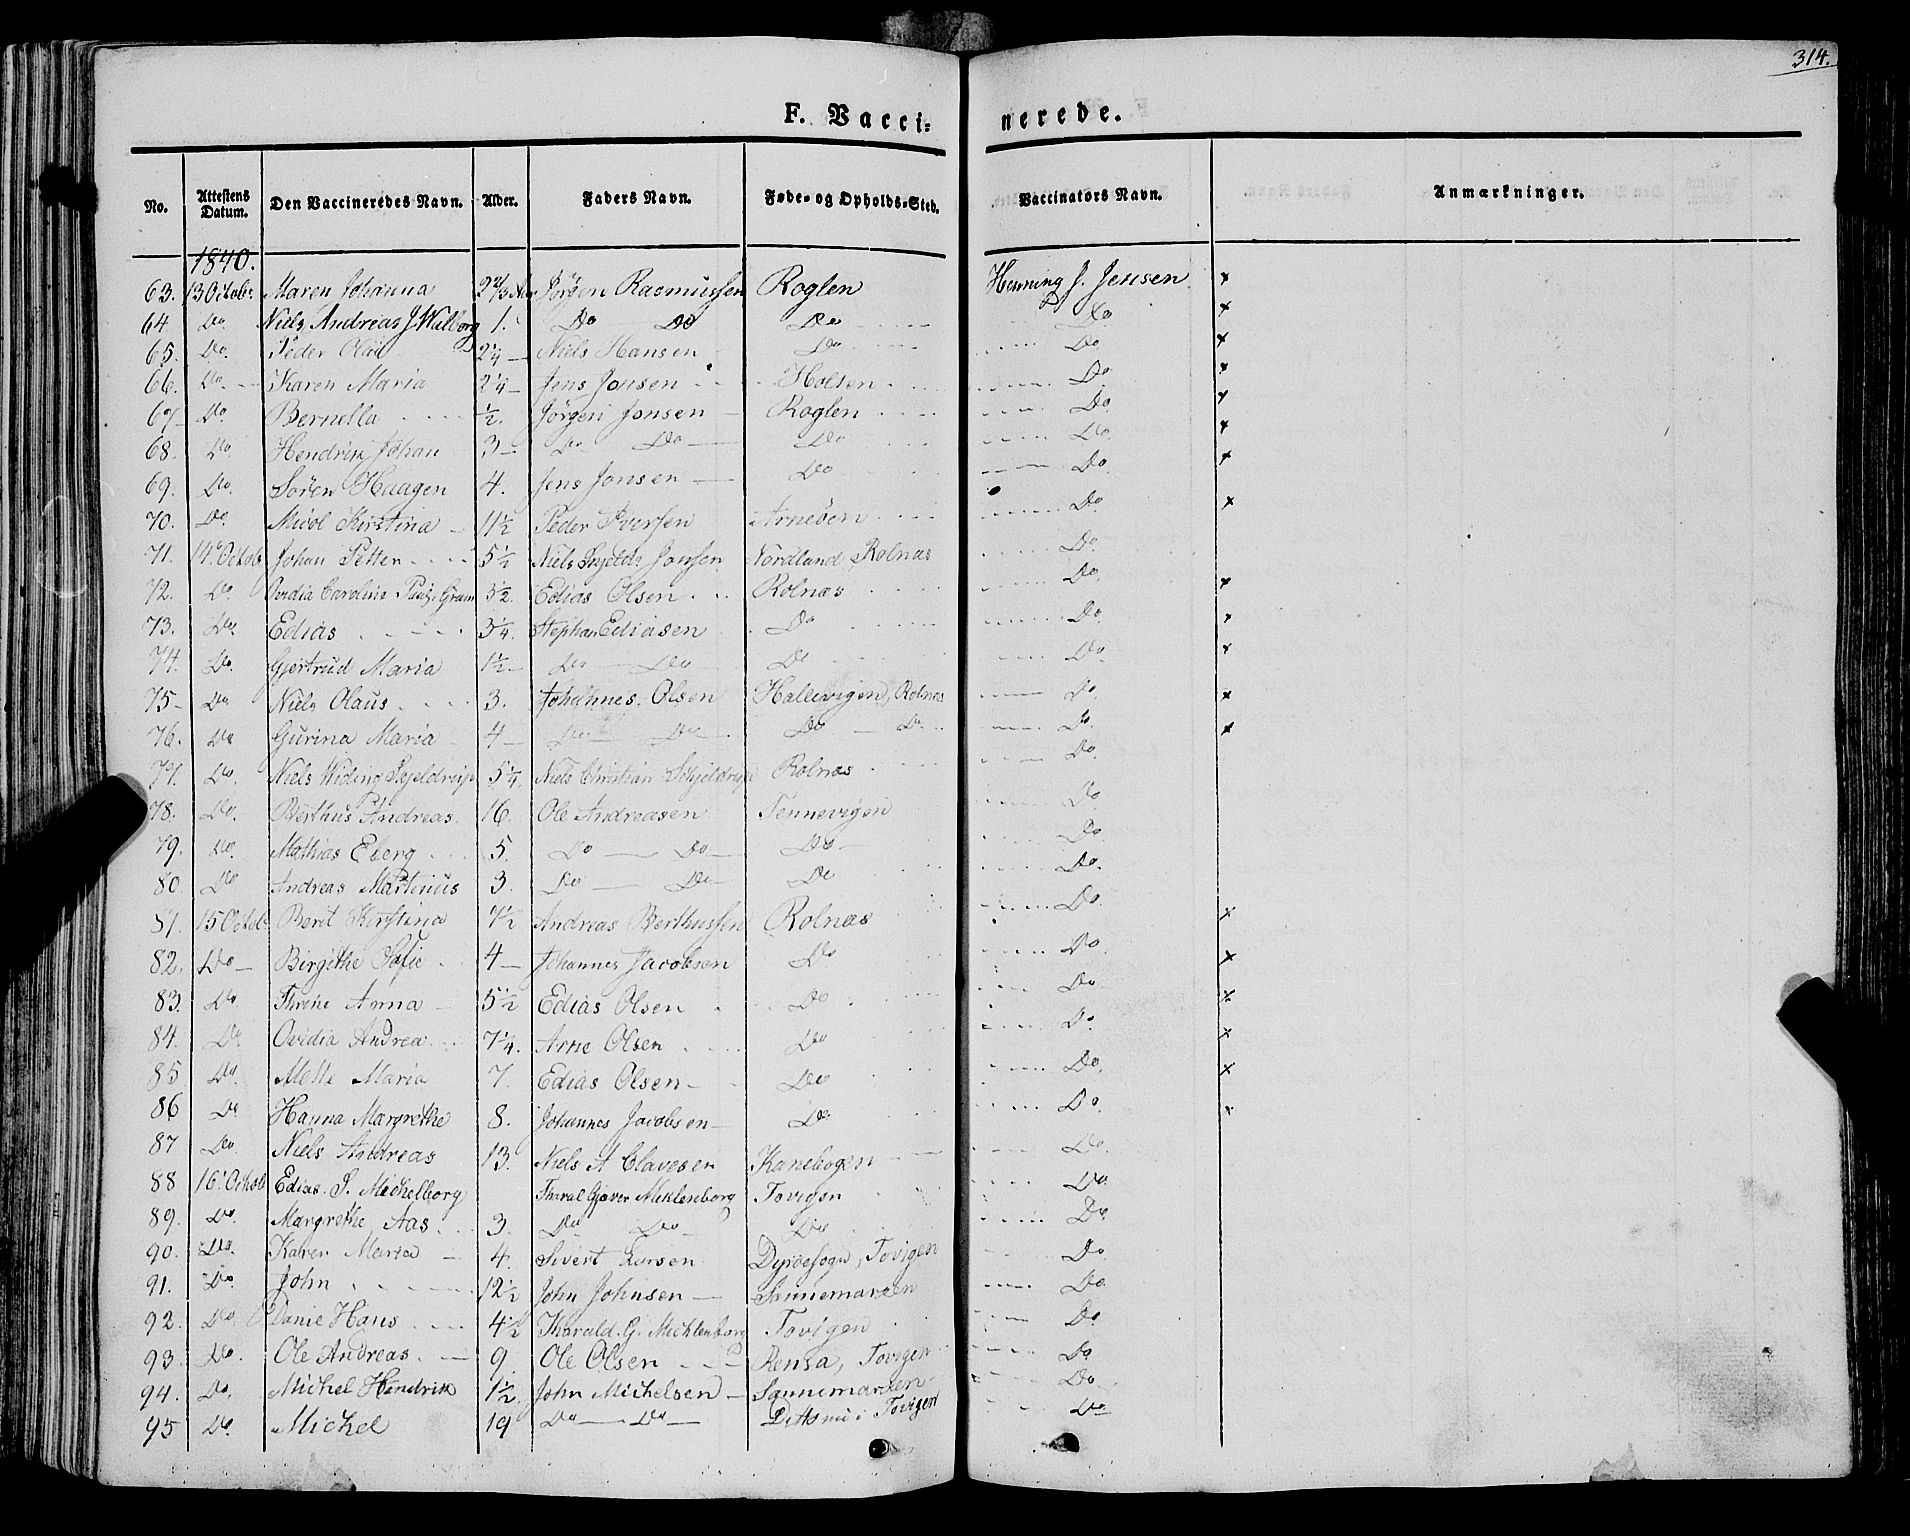 314.
F. Vaccinerede.
No. Attestens Datum. Den Vaccineredes Navn. Alder. Faders Navn. Føde- og Opholds-Sted. Vaccinators Navn. Anmærkninger.
1840.
63. 13 Octobr Maren Johanna 2 Jörgen Rasmussen Roglen Henning J. Jensen ×
64 Do Niels Andreas J Walborg 1. Do Do Do Do ×
65. Do. Peder Olai 2¼ Niels Hansen Do Do. ×
66. Do. Karen Maria 2¼ Jens Jonsen Holsen Do ×
67 Do Bernella ½. Jörgen Jonsen Roglen Do. ×
68. Do Hendrik Johan 3 Do Do Do Do. ×
69. Do. Sören Haagen 4. Jens Jonsen Do Do. ×
70. Do. Kirstina 11½ Peder Iversen Arneöen Do ×
71. 14 Octob Johan Petter 5½ Niels Jonsen Nordland Rolnæs Do.
72. Do. Caroline Gram 3½. Edias Olsen Rolnæs Do. ×
73. Do. Edias 3¼. Stephan Ediasen Do Do ×
74. Do. Gjertrud Maria 1½ Do Do Do Do ×
75 Do Niels Olaus 3. Johannes Olsen Hallevigen, Rolnæs Do ×
76. Do Gurina Maria 4 Do Do Do Do Do ×
77. Do. Niels Widing Skjeldrup 5¼. Niels Christian Schjeldrup Rolnæs Do
78. Do. Berthus Andreas 16. Ole Andreasen Tennevigen Do
79. Do. Mathias Eberg 5. Do Do Do Do
80 Do Andreas Martinus 3. Do Do Do Do.
81. 15 Octob Berit Kirstina Andreas Berthussen Rolnæs Do ×
82. Do Birgithe Sofie 4 Johannes Jacobsen Do Do ×
83. Do Anna 5½ Edias Olsen Do Do ×
84. Do Ovidia Andrea 7¼. Arne Olsen Do Do. ×
85 Do. Mette Maria 7. Edias Olsen Do Do. ×
86 Do Hanna Margrethe 8. Johannes Jacobsen Do Do. ×
87 Do. Niels Andreas 13. Niels A Clavesen Kanebogen Do.
88 16. Octob Edias J. Mechelborg Gjæver Meklenborg Tovigen Do
89. Do. Margrethe Aas 3. Do Do Do Do.
90. Do. Karen Maria 4. Sivert Dyröesogn, Tovigen Do
91. Do. John 12½ John Johnsen Sannemarken Do.
92. Do Danie Hans 4½ Tharald. G. Micklenborg Tovigen Do.
93. Do. Ole Andreas 9. Ole Olsen Rensa, Tovigen Do.
94. Do. Michel Hendrik 1½ John Michelsen Sannemarken Do
95 Do. Michel 19 Do Do Tovigen Do